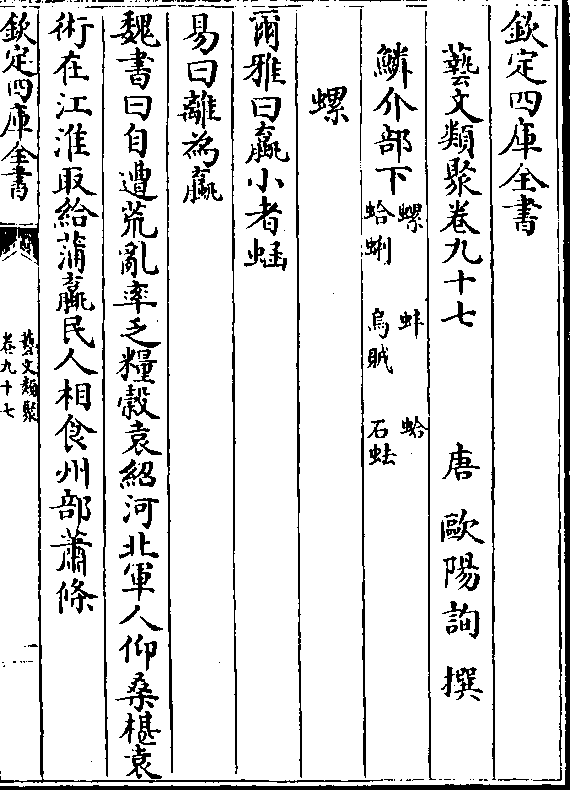 欽定四庫全書
藝文類聚卷九十七
唐 歐陽詢 撰
鱗介部下 螺 蚌 蛤
蛤蜊 烏賊 石蛣
螺
爾雅曰蠃小者蜬
易曰離為蠃
魏書曰自遭荒亂率乏糧穀袁紹河北軍人仰桑椹袁
術在江淮取給蒲蠃民人相食州部蕭條
欽定四庫全書
藝文類聚
卷九十七
一